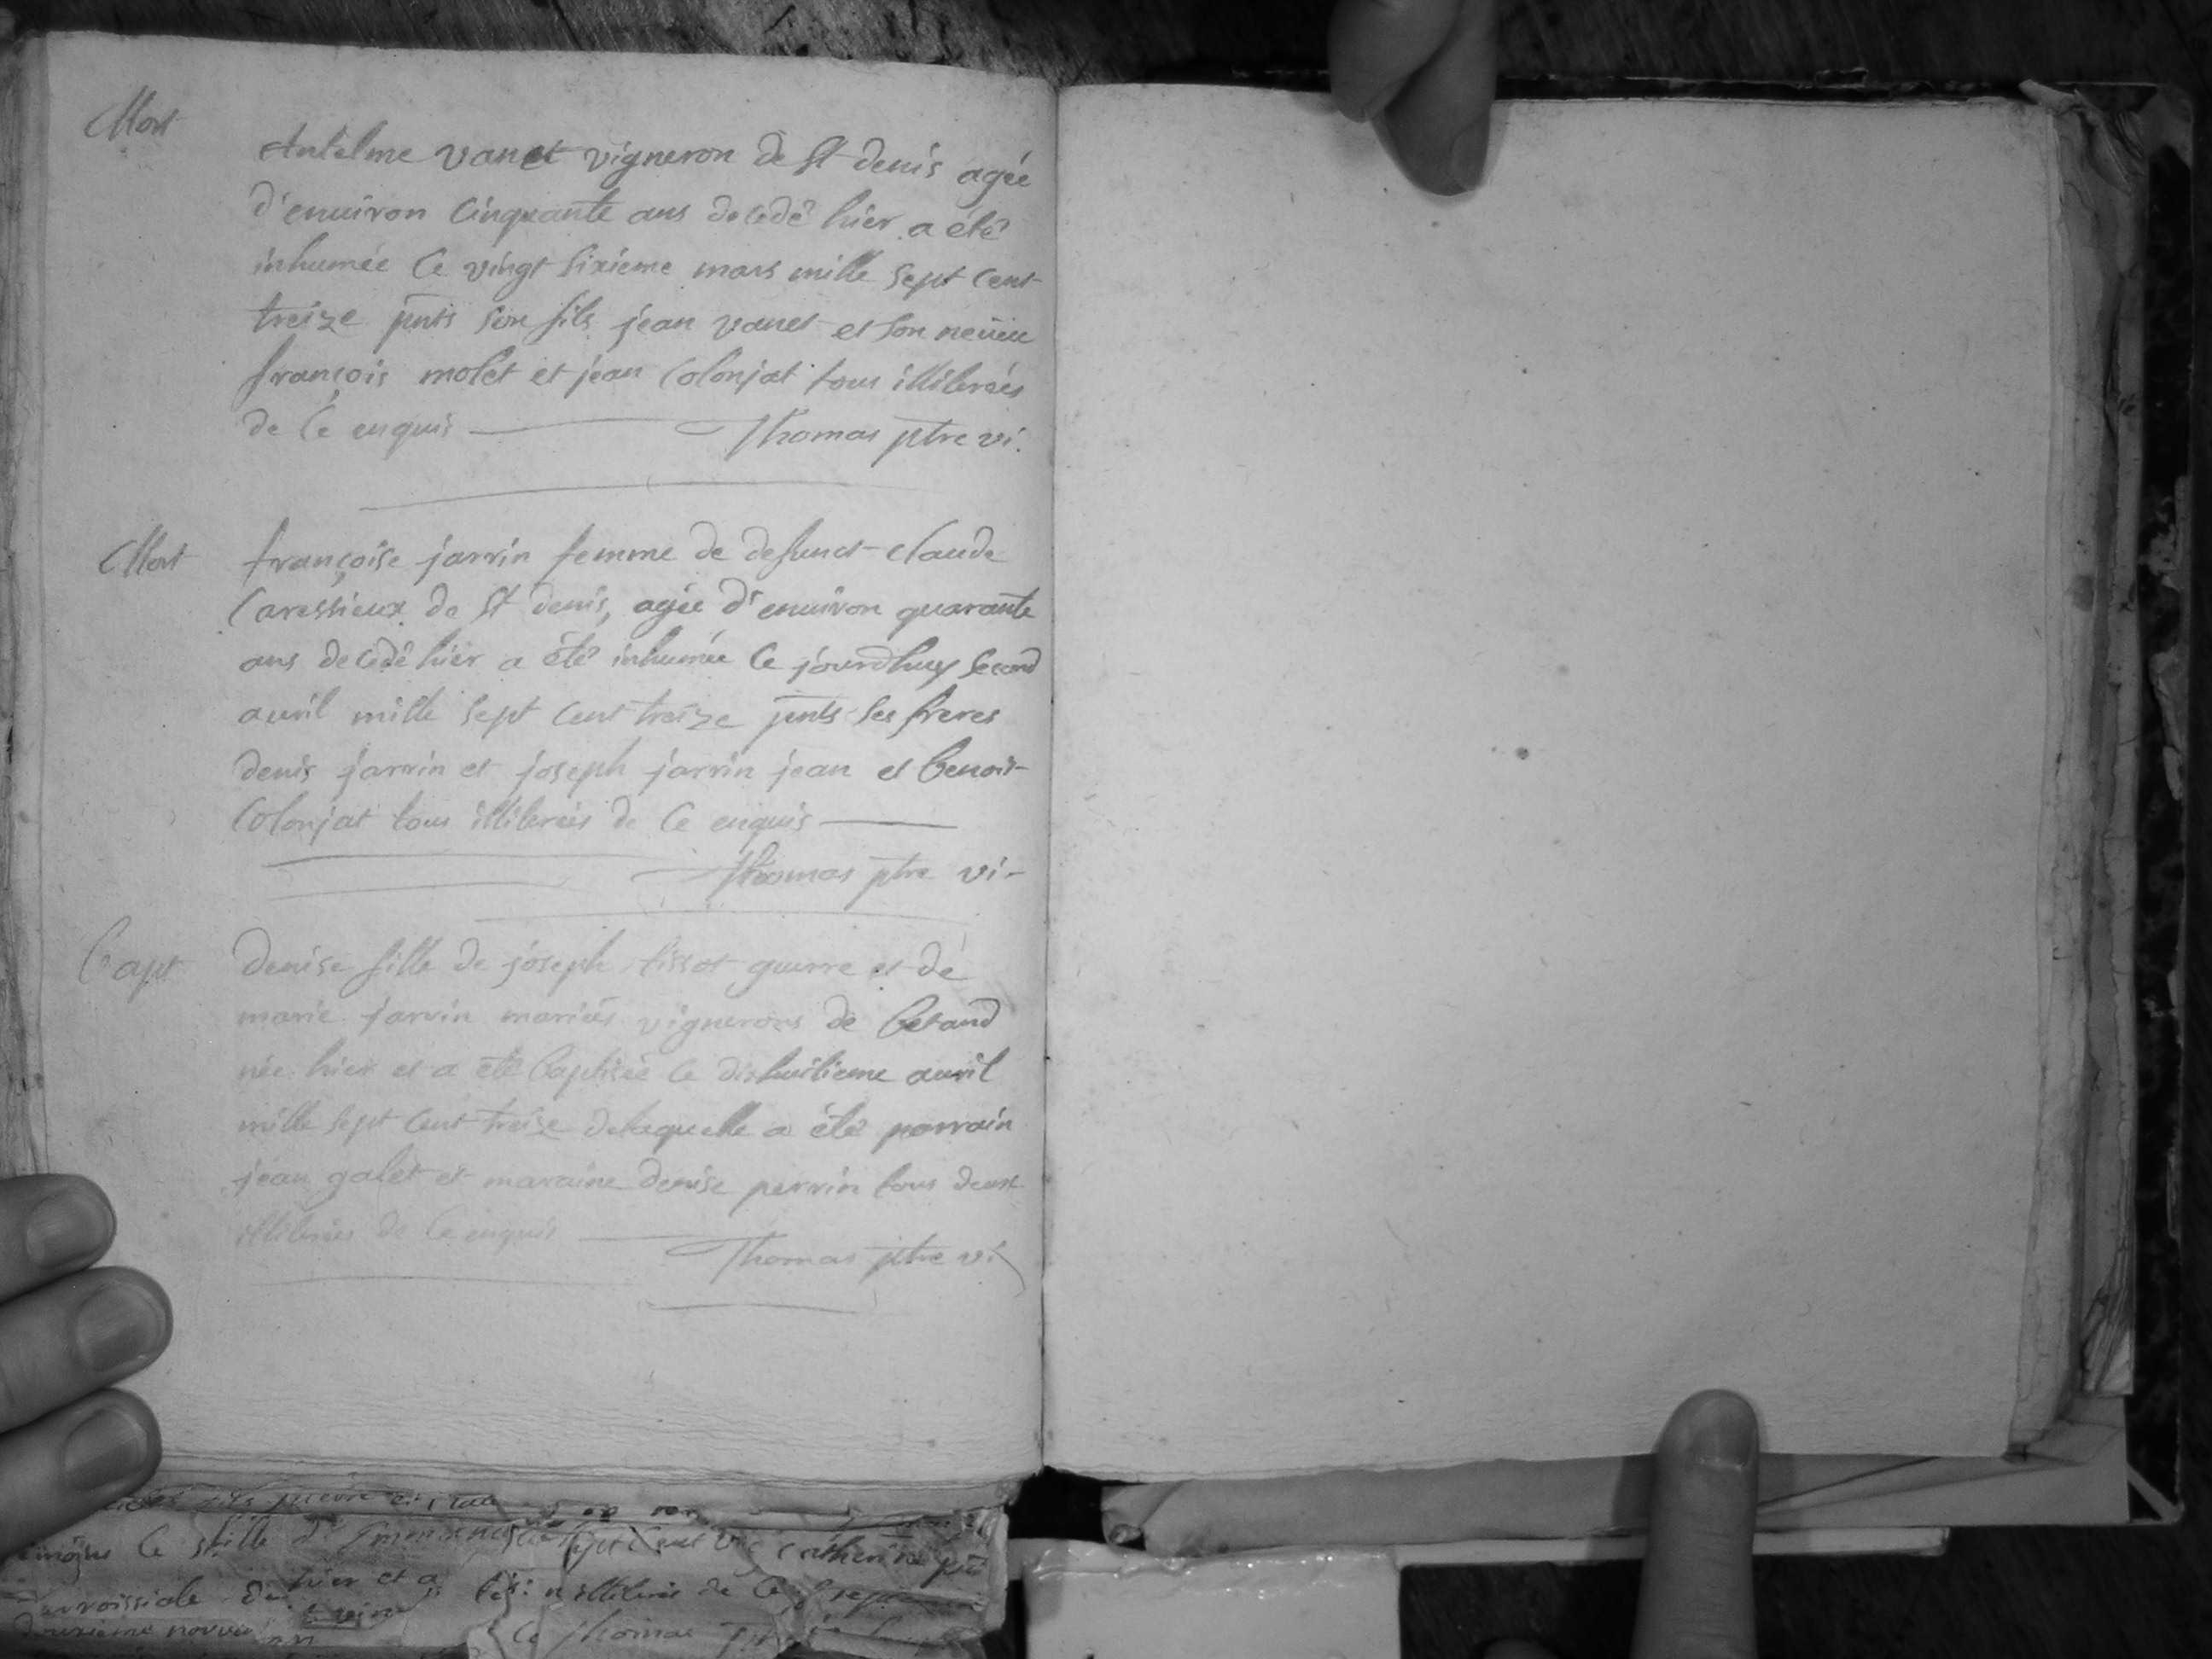 Mort
Antelme vanet vigneron de St denis agée
d'enuiron Cinquante ans decedé hier a été
inhumée Ce vingt sixieme mars mille sept Cent
treize pnts son fils jean vanet et son neueu
françois molet et jean Colonjat tous illiterées
de Ce enquis Thomas ptre vi.
Mort
françoise jarrin femme de defunct claude
Caressieux de St denis, agée d'enuiron quarante
ans decedé hier a été inhumée Ce jourdhuy second
auril mille sept Cent treize pnts ses freres
denis jarrin et joseph jarrin jean et benoit
Colonjat tous illiterées de Ce enquis
Thomas ptre vi
Bapt
Denise fille de joseph tissot guerre et de
marie jarrin mariés vignerons de betand
née hier et a été baptisée le dixhuitieme auril
mille sept Cent treize delaquelle a été parrain
jean galet et maraine denise perrin tous deux
illiterées de Ce enquis
Thomas ptre vi
Ce fille
sept Cent catherine
parroissiale hier et a illiteré de Ce
Thomas